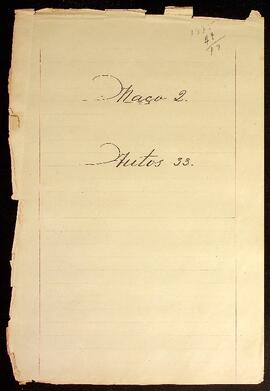 Maço 2.
Autos 33.